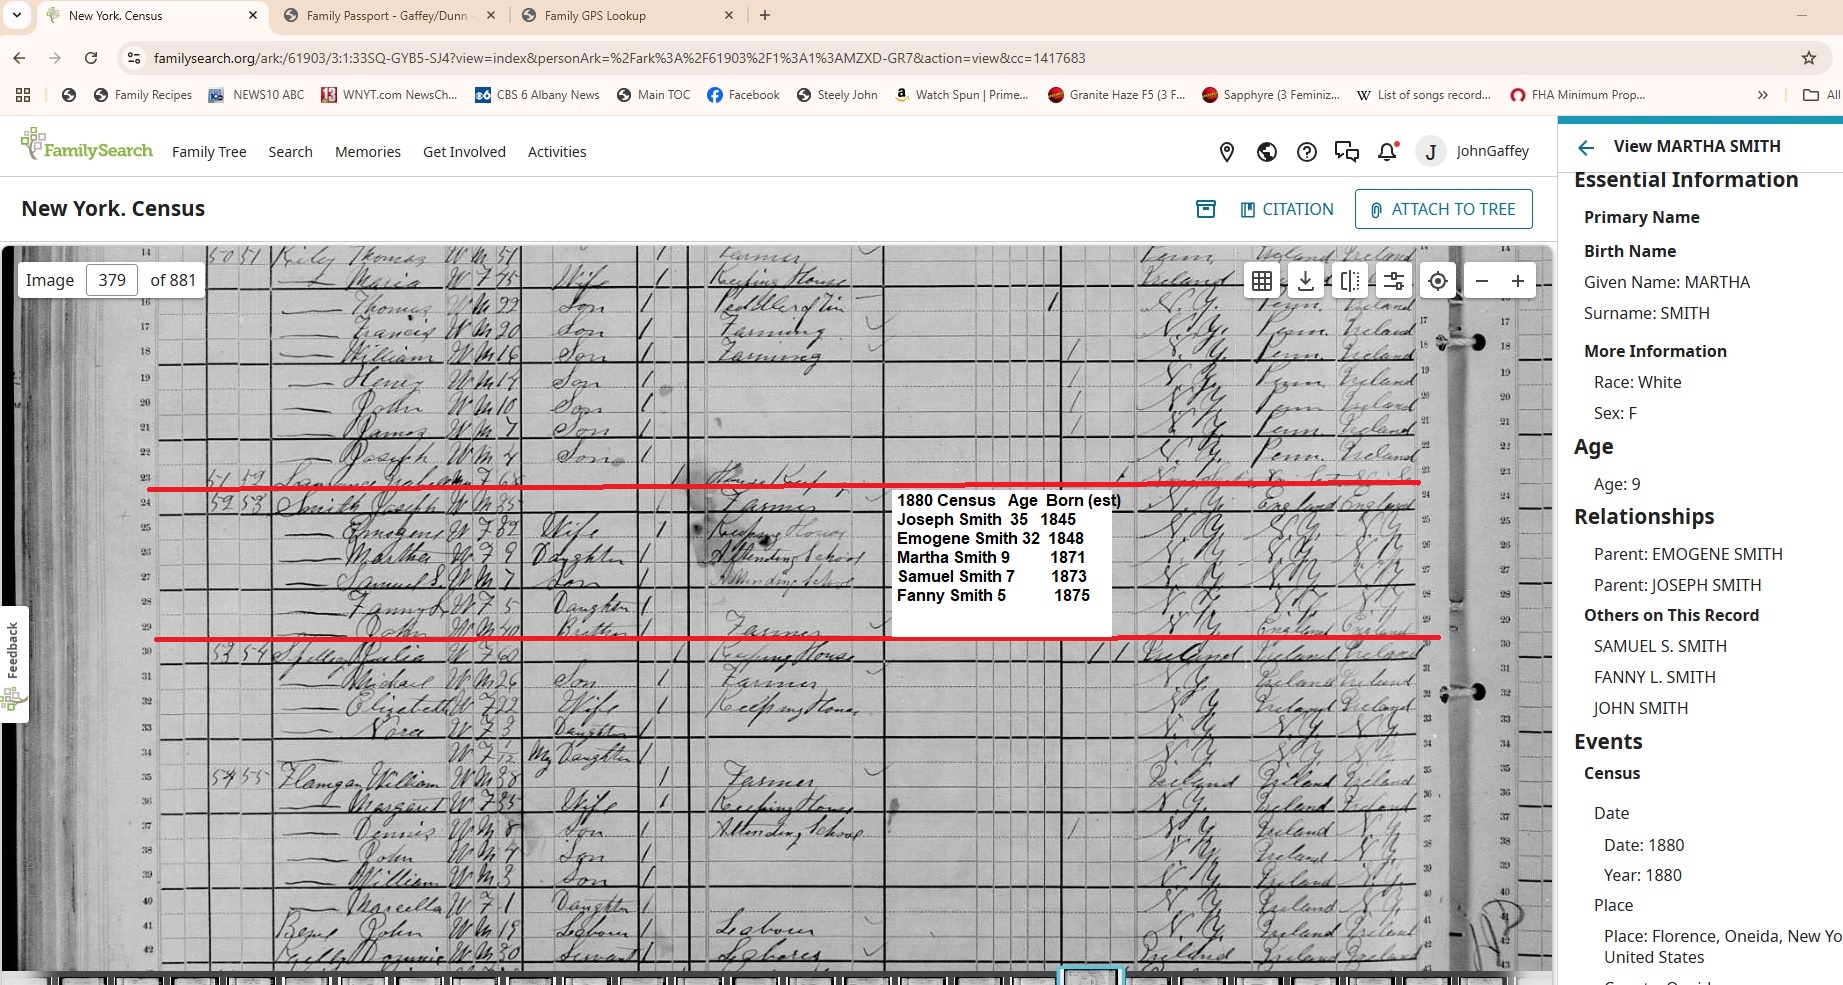 New York. Census
Family Passport - Gaffey/Dunn
Family GPS Lookup
familysearch.org/ark:/61903/3:1:33SQ-GYB5-SJ4?view=index&personArk=%2Fark%3A%2F61903%2F1%3A1%3AMZXD-GR7&action=view&cc=1417683
Family Recipes NEWS10 ABC WNYT.com NewsCh... CBS 6 Albany News Main TOC Facebook Steely John Watch Spun | Prime... Granite Haze F5 (3 F... Sapphyre (3 Feminiz... List of songs record... FHA Minimum Prop... » All
FamilySearch Family Tree Search Memories Get Involved Activities J JohnGaffey
New York. Census CITATION ATTACH TO TREE
Image 379 of 881
14 50 51 Riley Thomas W M 51 Farmer Penn. Ireland Ireland 14
Maria W F 45 Wife Keeping House Ireland
16 Thomas W M 22 Son Peddler of Tin N.Y. Penn. Ireland
17 Francis W M 20 Son Farming N.Y. Penn. Ireland 17
18 William W M 16 Son Farming N.Y. Penn. Ireland 18
19 Henry W M 14 Son N.Y. Penn. Ireland 19
20 John W M 10 Son N.Y. Penn. Ireland 20
21 James W M 7 Son N.Y. Penn. Ireland 21
22 Joseph W M 4 Son N.Y. Penn. Ireland 22
23 51 52 F 23
24 52 53 Smith Joseph W M 35 Farmer N.Y. England England 24
25 Emogene W F 32 Wife Keeping House N.Y. N.Y. N.Y. 25
26 Martha W F 9 Daughter Attending School N.Y. N.Y. N.Y. 26
27 Samuel S. W M 7 Son Attending School N.Y. N.Y. N.Y. 27
28 Fanny L W F 5 Daughter N.Y. N.Y. N.Y. 28
29 John W M 40 Brother Farmer N.Y. England England 29
30 53 54 Julia W F 60 Keeping House Ireland Ireland Ireland 30
31 Michael W M 26 Son Farmer N.Y. Ireland Ireland 31
32 Elizabeth W F 22 Wife Keeping House N.Y. Ireland Ireland 32
33 Nora W F 3 Daughter N.Y. N.Y. N.Y. 33
34 W F Daughter N.Y. N.Y. N.Y. 34
35 54 55 Flanigan William W M 38 Farmer Ireland Ireland Ireland 35
36 Margaret W F 35 Wife Keeping House N.Y. Ireland Ireland 36
37 Dennis W M 8 Son Attending School N.Y. Ireland N.Y. 37
38 John W M 4 Son N.Y. Ireland N.Y. 38
39 William W M 3 Son N.Y. Ireland N.Y. 39
40 Marcella W F 1 Daughter N.Y. Ireland N.Y. 40
41 John W M 19 Labourer N.Y. Ireland Ireland 41
42 W M 30 Servant Laborer Ireland Ireland Ireland 42
1880 Census Age Born (est)
Joseph Smith 35 1845
Emogene Smith 32 1848
Martha Smith 9 1871
Samuel Smith 7 1873
Fanny Smith 5 1875
Feedback
View MARTHA SMITH
Essential Information
Primary Name
Birth Name
Given Name: MARTHA
Surname: SMITH
More Information
Race: White
Sex: F
Age
Age: 9
Relationships
Parent: EMOGENE SMITH
Parent: JOSEPH SMITH
Others on This Record
SAMUEL S. SMITH
FANNY L. SMITH
JOHN SMITH
Events
Census
Date
Date: 1880
Year: 1880
Place
Place: Florence, Oneida, New Yo
United States